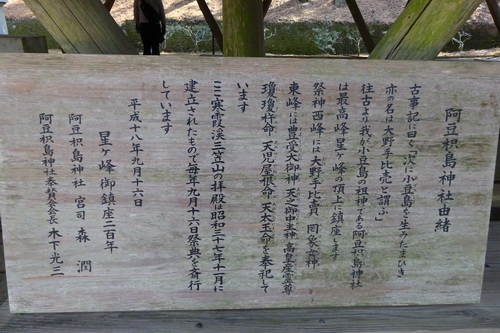 阿豆枳島神社由緒
古事記に曰く「次に小豆島を生みたまひき
亦の名は大野手比売と謂ふ」
往古より我が小豆島の祖神である阿豆枳島神社
は最高峰星ヶ峰の頂上に鎮座します
祭神西峰には大野手比賣 罔象女神
東峰には豊受大御神 天之御中主神 高皇産霊尊
瓊瓊杵命 天児屋根命 天太玉命を奉祀して
います
ここ寒霞渓三笠山の拝殿は昭和三十七年十一月に
建立されたもので毎年九月十六日祭典を斎行
しています
平成十八年九月十六日
星ヶ峰御鎮座二百年
阿豆枳島神社 宮司 森 潤
阿豆枳島神社奉賛会長 木下光三